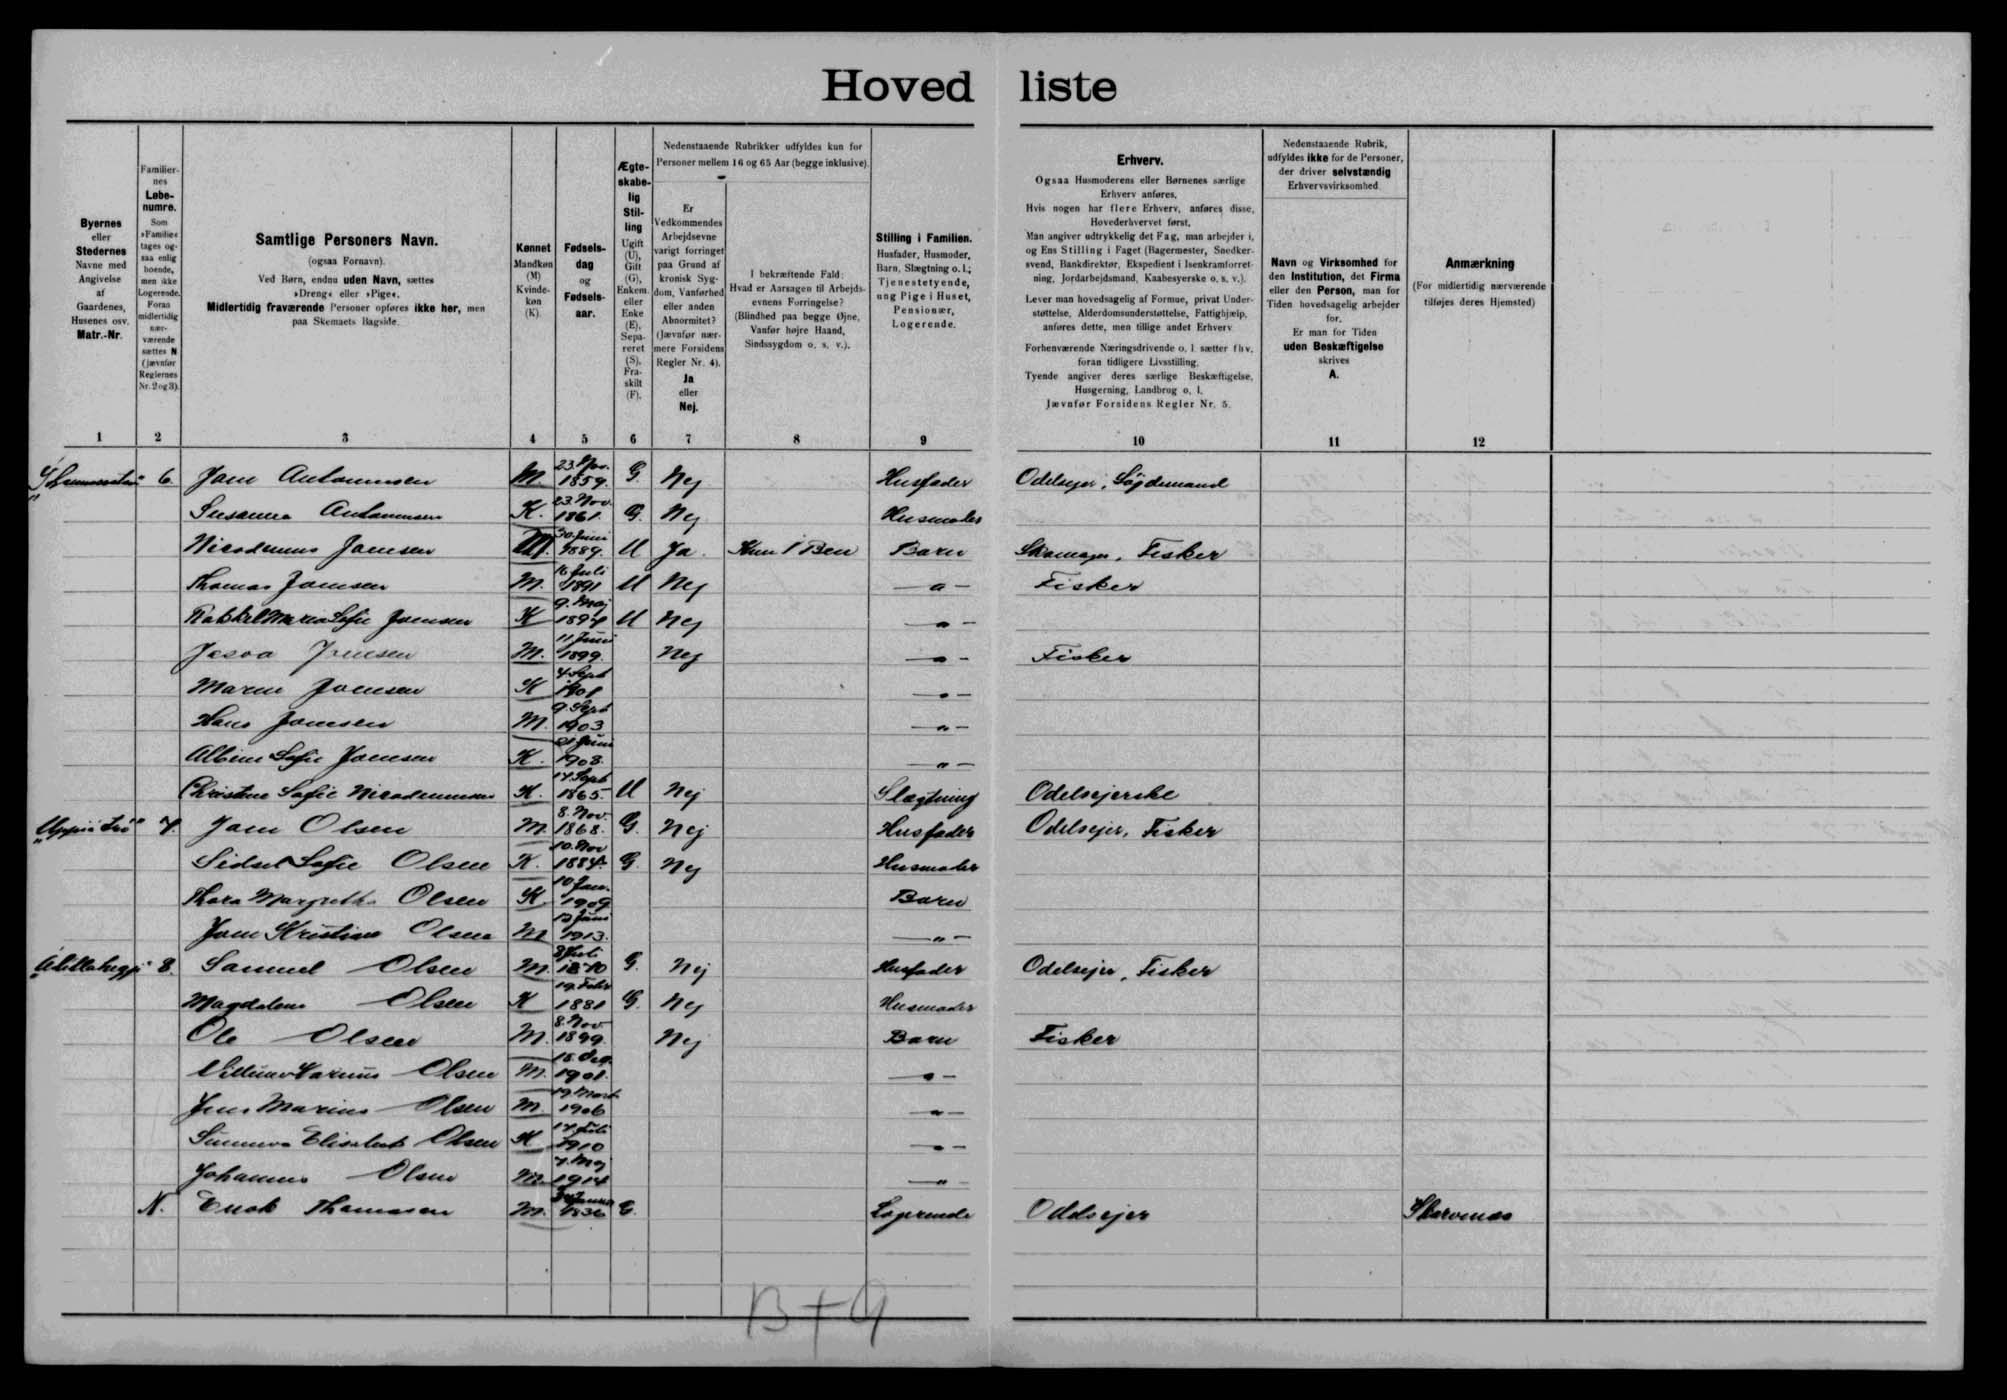 Hoved liste
Byernes
eller
Stedernes
Navne med
Angivelse
af
Gaardenes,
Husenes osv.
Matr.-Nr.
Familier-
nes
Løbe-
numre.
Som
»Familie«
tages og-
saa enlig
boende,
men ikke
Logerende.
Foran
midlertidig
nær-
værende
sættes N
(jævnfør
Reglernes
Nr. 2 og 3).
Samtlige Personers Navn.
(ogsaa Fornavn).
Ved Børn, endnu uden Navn, sættes
»Dreng« eller »Pige«.
Midlertidig fraværende Personer opføres ikke her, men
paa Skemaets Bagside.
Kønnet
Mandkøn
(M)
Kvinde-
køn
(K).
Fødsels-
dag
og
Fødsels-
aar.
Ægte-
skabe-
lig
Stil-
ling
Ugift
(U),
Gift
(G),
Enkem.
eller
Enke
(E),
Sepa-
reret
(S),
Fra-
skilt
(F).
Nedenstaaende Rubrikker udfyldes kun for
Personer mellem 16 og 65 Aar (begge inklusive).
Er
Vedkommendes
Arbejdsevne
varigt forringet
paa Grund af
kronisk Syg-
dom, Vanførhed
eller anden
Abnormitet?
(Jævnfør nær-
mere Forsidens
Regler Nr. 4).
Ja
eller
Nej.
I bekræftende Fald:
Hvad er Aarsagen til Arbejds-
evnens Forringelse?
(Blindhed paa begge Øjne,
Vanfør højre Haand,
Sindssygdom o. s. v.).
Stilling i Familien.
Husfader, Husmoder,
Barn, Slægtning o. l.;
Tjenestetyende,
ung Pige i Huset,
Pensionær,
Logerende.
Erhverv.
Ogsaa Husmoderens eller Børnenes særlige
Erhverv anføres.
Hvis nogen har flere Erhverv, anføres disse,
Hovederhvervet først.
Man angiver udtrykkelig det Fag, man arbejder i,
og Ens Stilling i Faget (Bagermester, Snedker-
svend, Bankdirektør, Ekspedient i Isenkramforret-
ning, Jordarbejdsmand, Kaabesyerske o. s. v.).
Lever man hovedsagelig af Formue, privat Under-
støttelse, Alderdomsunderstøttelse, Fattighjælp,
anføres dette, men tillige andet Erhverv
Forhenværende Næringsdrivende o. l. sætter fhv.
foran tidligere Livsstilling.
Tyende angiver deres særlige Beskæftigelse,
Husgerning, Landbrug o. l.
Jævnfør Forsidens Regler Nr. 5.
Nedenstaaende Rubrik,
udfyldes ikke for de Personer,
der driver selvstændig
Erhvervsvirksomhed.
Navn og Virksomhed for
den Institution, det Firma
eller den Person, man for
Tiden hovedsagelig arbejder
for.
Er man for Tiden
uden Beskæftigelse
skrives
A.
Anmærkning
(For midlertidig nærværende
tilføjes deres Hjemsted)
1 2 3 4 5 6 7 8 9 10 11 12
6. Joen Antonnsen M. 23. Nov. 1859. G. Nej Husfader Odelsejer,
Susanna Antonnsen K. 23. Nov. 1861. G. Nej Husmoder
Nicodemus Joensen M. 30. Juni 1889. U Ja. Ben Barn Fisker
Thomas Joensen M. 16. Juli 1891 U Nej -"- Fisker
Maria Sofie Joensen K 9. Maj 1894 U Nej -"-
Josva Joensen M. 11. Juni 1899. Nej -"- Fisker
Maren Joensen K 4. Sept 1901 -"-
Hans Joensen M. 9. Sept 1903 -"-
Sofie Joensen K. 21 Juni 1908. -"-
Christine Sofie Nicodemussen K. 17. Sept 1865. U Nej Slægtning Odelsejerske
7. Joen Olsen M. 8. Nov. 1868. G. Nej Husfader Odelsejer, Fisker
Sidsel Sofie Olsen K. 10. Nov 1884. G. Nej Husmoder
Thora Margretha Olsen K 10 Jan. 1909 Barn
Joen Kristian Olsen M Juni 1913. -"-
8. Samuel Olsen M. Juli 1870 G. Nej Husfader Odelsejer, Fisker
Magdalena Olsen K 19. Febr 1881 G. Nej Husmoder
Ole Olsen M. 8. Nov 1899. Nej Barn Fisker
Olsen M. 1901. -"-
Jens Marius Olsen M. 19. Marts 1906 -"-
Sunneva Elisabeth Olsen K 17. Juli 1910 -"-
Johannes Olsen M. 7. Maj 1914 -"-
N. Enok Thomasen M. 1836 G. Logerende Odelsejer Skarvenæs
B+9